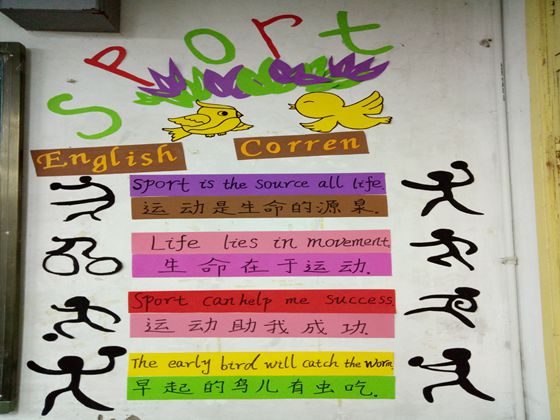 Sport
English Corren
Sport is the source all life.
运动是生命的源泉.
Life lies in movement.
生命在于运动.
Sport can help me success.
运动助我成功.
The early bird will catch the worm.
早起的鸟儿有虫吃.